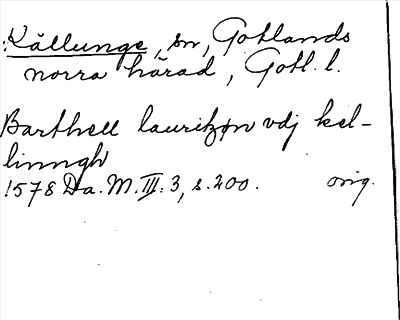 Källunge, sn, Gotlands
norra härad, Gotl. l.
Barthell lauritzsn vdj kel-
linngh
1578 Da. M. III: 3, s. 200. orig.